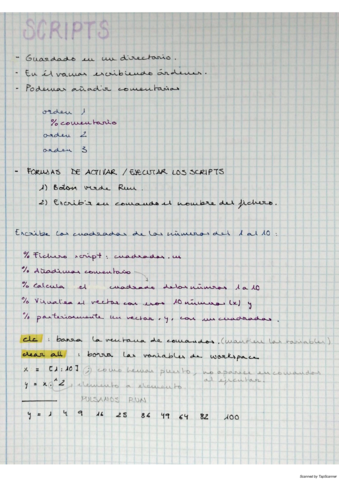 SCRIPTS
- Guardado en un directorio.
- En él vamos escribiendo órdenes.
- Podemos añadir comentarios
orden 1
% comentario
orden 2
orden 3
- FORMAS DE ACTIVAR / EJECUTAR LOS SCRIPTS
1) Boton verde Run
2) Escribir en comando el nombre del fichero.
Escribe los cuadrados de los números del 1 al 10:
% Fichero script: cuadrados.m
% Añadimos comentario
% Calcula el cuadrado de los números 1 a 10
% Visualiza el vector con esos 10 números (x) y
% posteriormente un vector, y, con sus cuadrados.
clc : borra la ventana de comandos. (mantiene las variables)
clear all : borra las variables de workspace
x = [1:10]; como hemos puesto ; no aparece en comandos
y = x.^2 elemento a elemento. al ejecutar.
PULSAMOS RUN
y = 1 4 9 16 25 36 49 64 82 100
Scanned by TapScanner